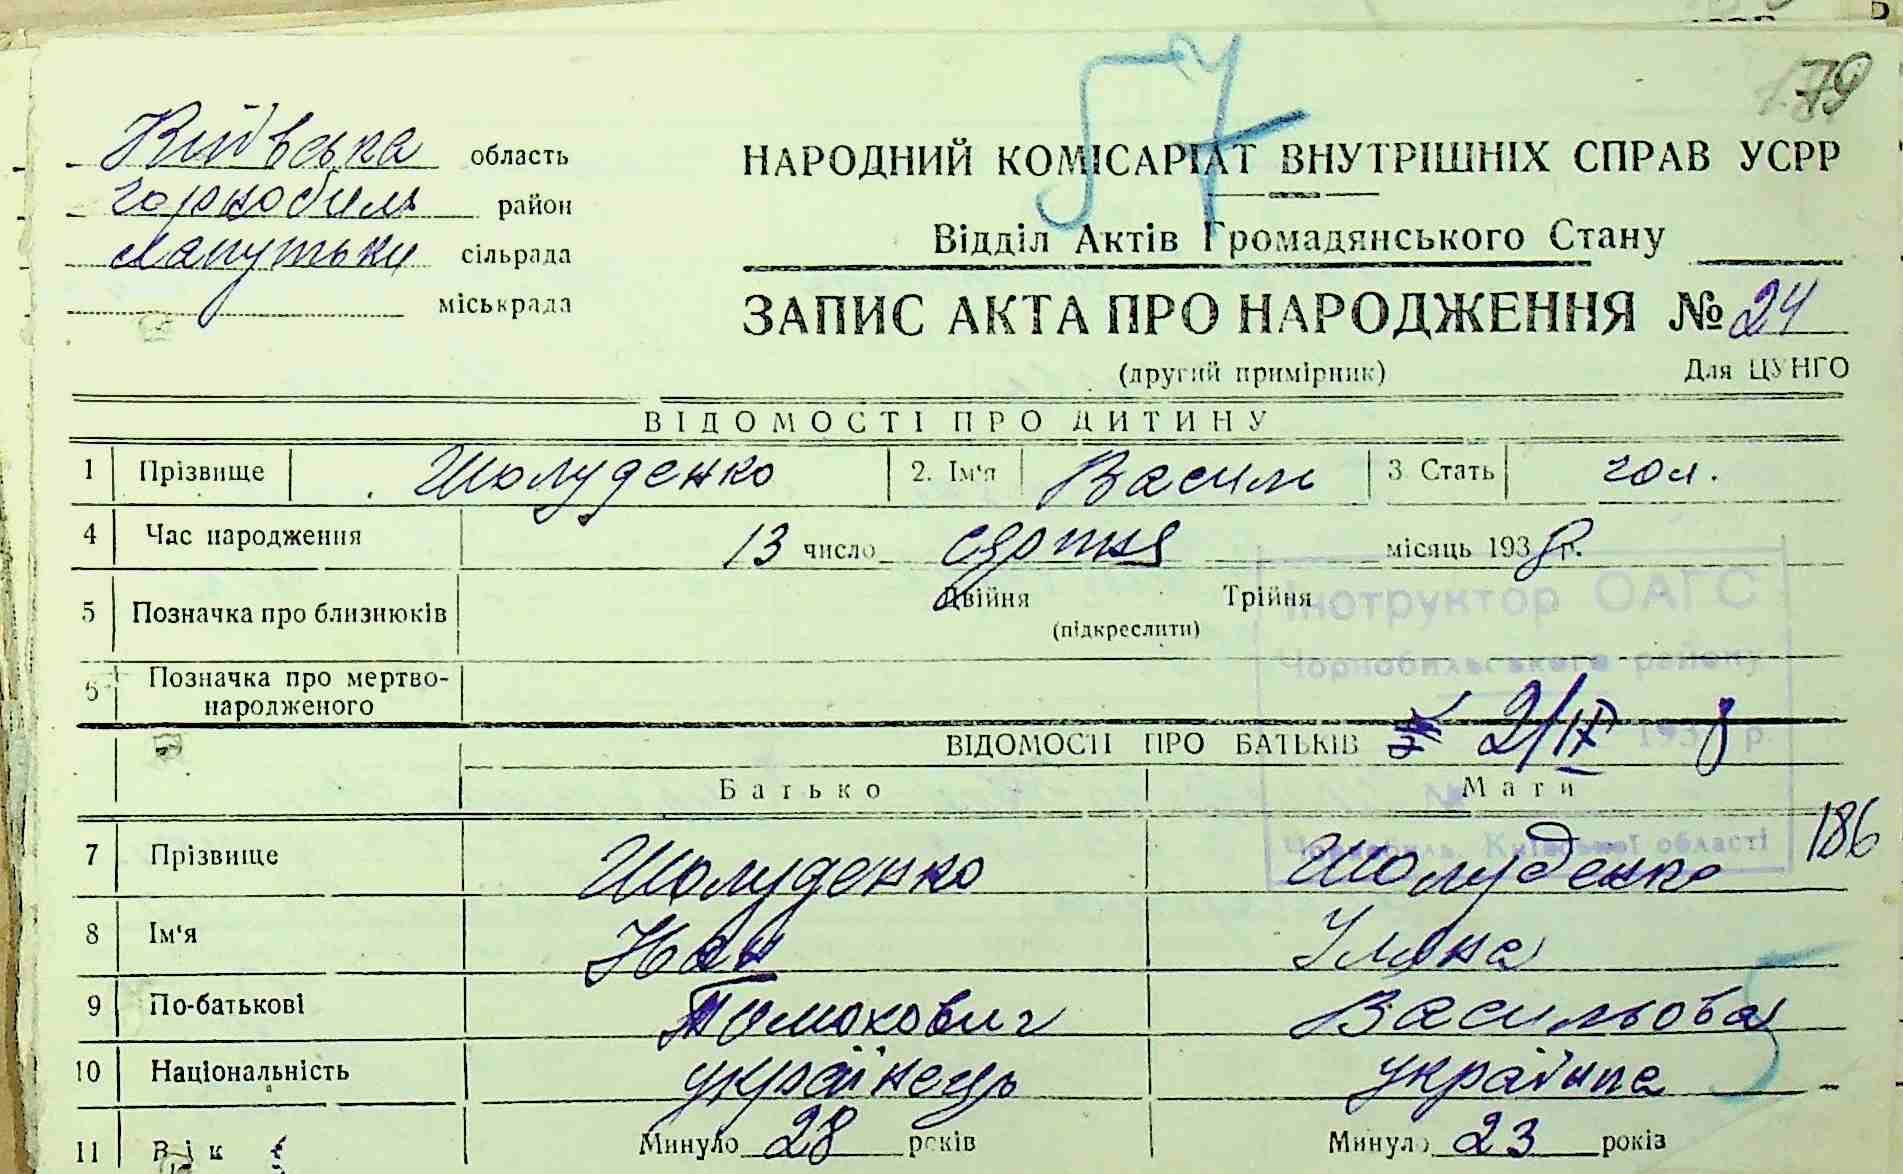 57
79
Київська область
горнобиль район
Лапутьки сільрада
міськрада
НАРОДНИЙ КОМІСАРІАТ ВНУТРІШНІХ СПРАВ УСРР
Відділ Актів Громадянського Стану
ЗАПИС АКТА ПРО НАРОДЖЕННЯ № 24
(другий примірник) Для ЦУНГО
ВІДОМОСТІ ПРО ДИТИНУ
1 Прізвище Шолуденко 2. Ім'я Василь 3 Стать гол.
4 Час народження 13 число серпня місяць 1938 р.
5 Позначка про близнюків Двійня Трійня
(підкреслити)
Інструктор ОАГС
Чорнобильського району
6 Позначка про мертво-
народженого
ВІДОМОСТІ ПРО БАТЬКІВ 2/IX 1938 р.
Батько Мати
№
186
Чорнобиль, Київської області
7 Прізвище Шолуденко Шолуденко
8 Ім'я Іван Уляна
9 По-батькові Тимохович Васильова
10 Національність українець українка
11 Вік Минуло 28 років Минуло 23 років